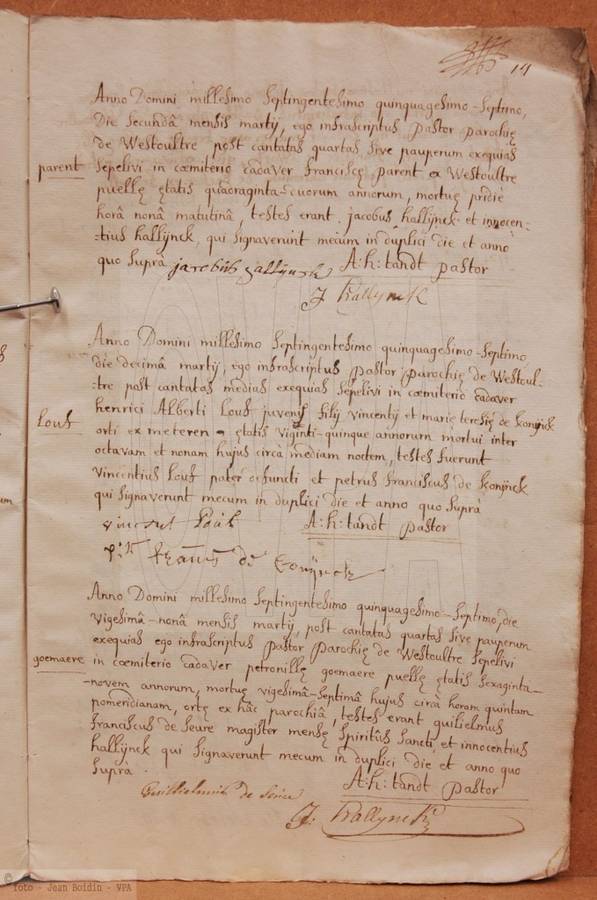 14
Anno Domini millesimo septingentesimo quinquagesimo-septimo,
Die secundâ mensis martij, ego infrascriptus pastor parochię
de Westoultre post cantatas quartas sive pauperum exequias
parent
sepelivi in cœmiterio cadaver franciscę parent ex Westoultre
puellę ętatis quadraginta-duorum annorum, mortuę pridiè
horâ nonâ matutinâ, testes erant jacobus hallijnck et innocen-
-tius hallijnck, qui signaverunt mecum in duplici die et anno
quo suprà jacobus hallijnck A:h:tandt pastor
J hallynck
Anno Domini millesimo septingentesimo quinquagesimo-septimo
die decimâ martij, ego infrascriptus pastor parochię de Westoul-
-tre post cantatas medias exequias sepelivi in cœmiterio cadaver
Louf
henrici Alberti Louf juvenis filij vincentij et marię teresię de Konijnck
orti ex meteren ętatis viginti-quinque annorum mortui inter
octavam et nonam hujus circà mediam noctem, testes fuerunt
vincentius Louf pater defuncti et petrus franciscus de Konijnck
qui signaverunt mecum in duplici die et anno quo suprà
A:h:tandt pastor
de Conijnck
Anno Domini millesimo septingentesimo quinquagesimo-septimo, die
vigesimâ-nonâ mensis martij, post cantatas quartas sive pauperum
exequias ego infrascriptus pastor parochię de Westoultre sepelivi
goemaere
in cœmiterio cadaver petronillę goemaere puellę ętatis sexaginta-
-novem annorum, mortuę vigesimâ-septimâ hujus circà horam quintam
pomeridianam, ortę ex hâc parochiâ, testes erant guilielmus
franciscus de seure magister mensę spiritûs sancti, et innocentius
hallijnck qui signaverunt mecum in duplici die et anno quo
suprà.
A:h:tandt pastor
Guillielmus de Seure
J: hallynck
© foto - Jean Boidin - VPA